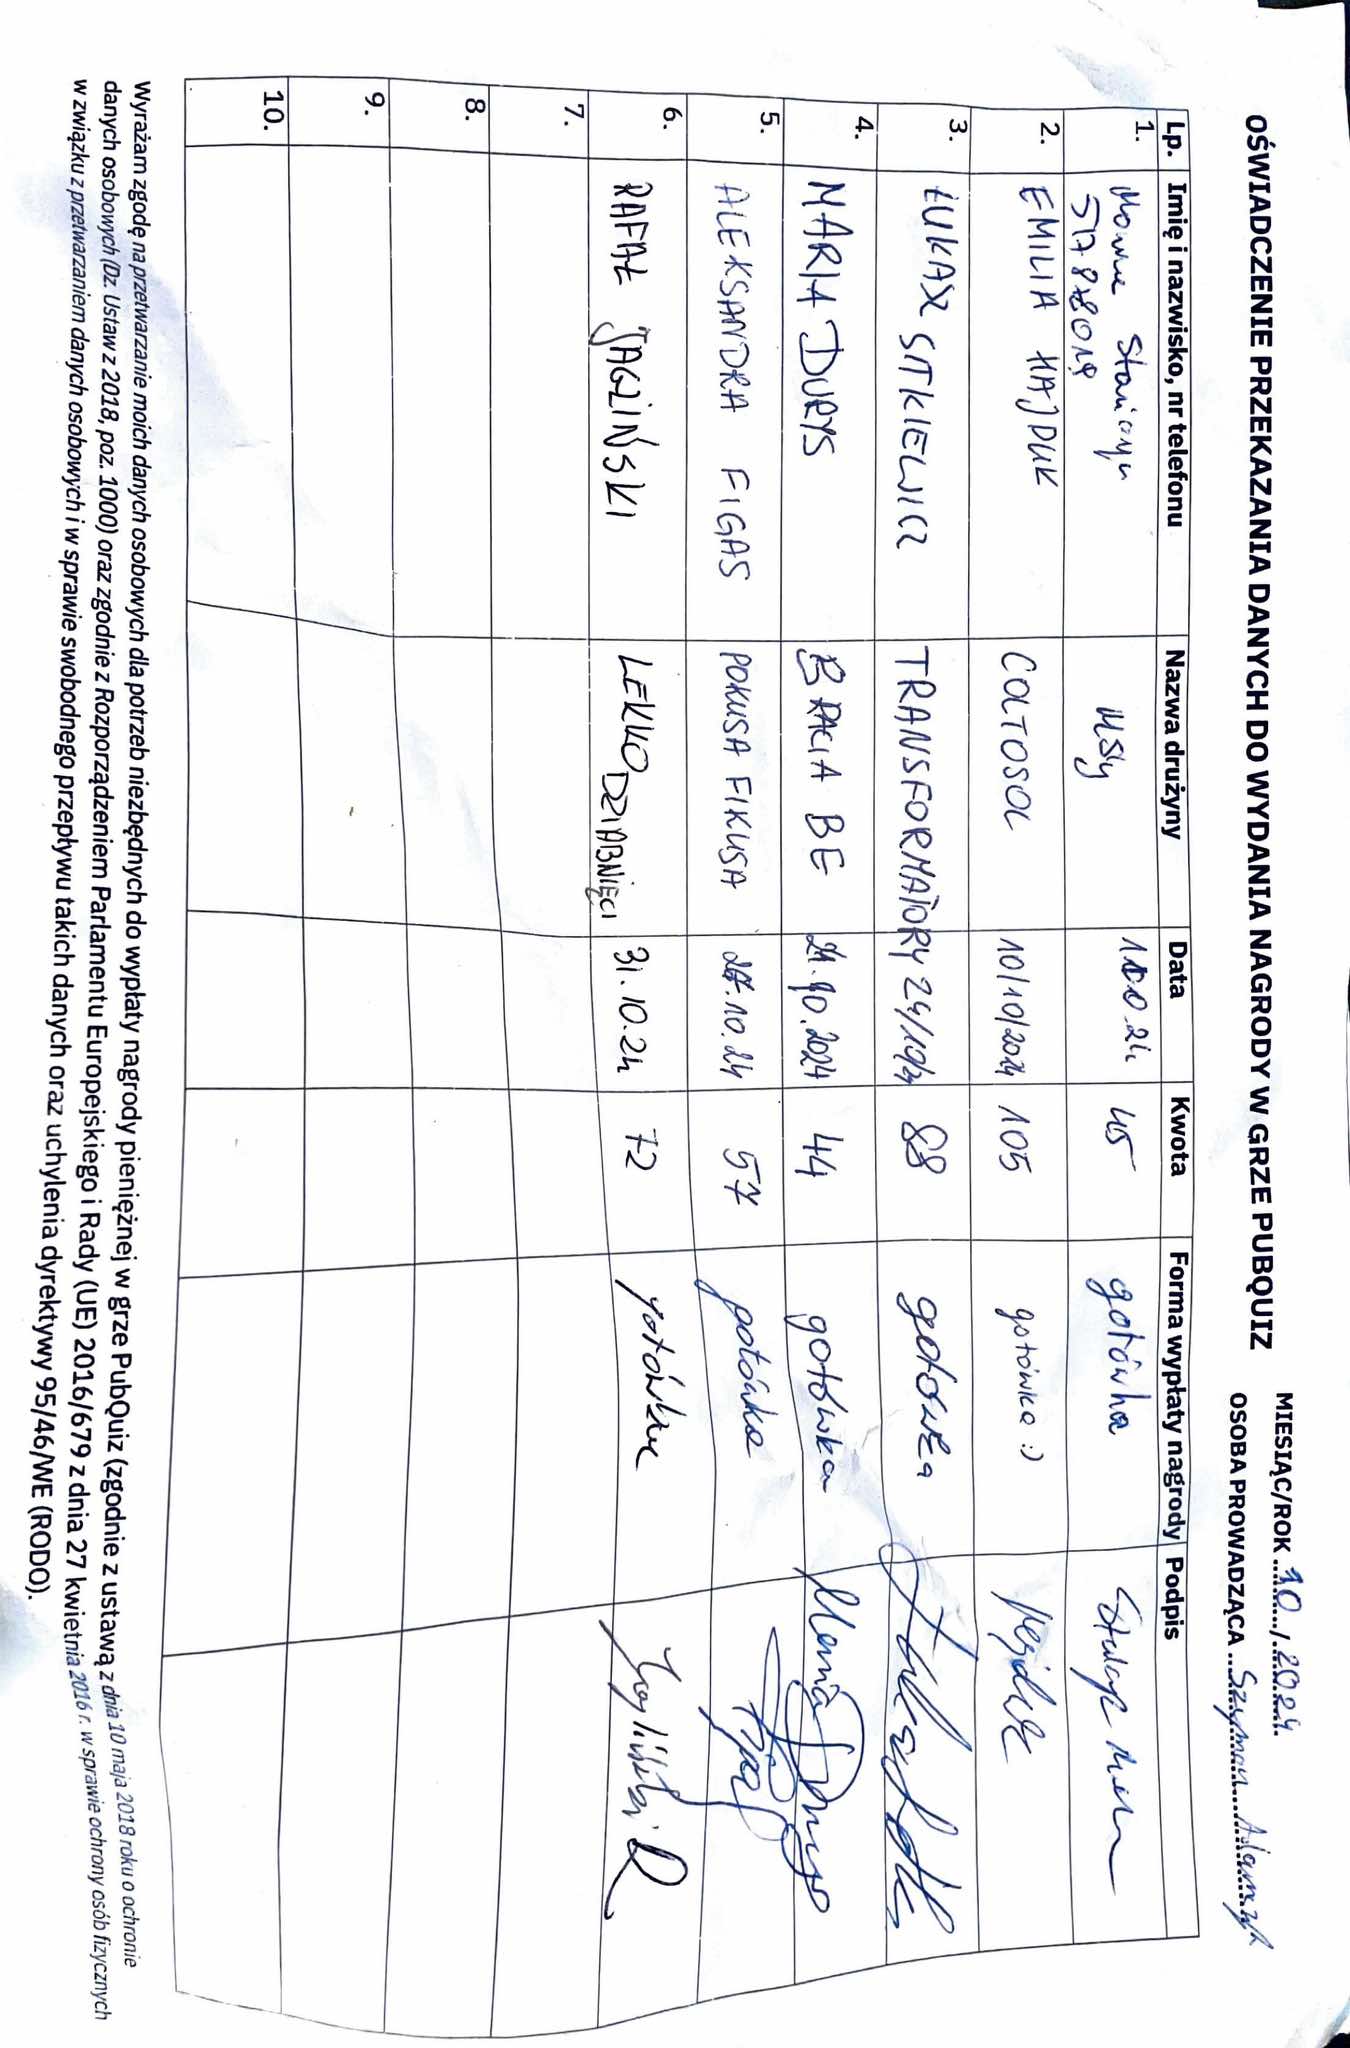 OŚWIADCZENIE PRZEKAZANIA DANYCH DO WYDANIA NAGRODY W GRZE PUBQUIZ
MIESIĄC/ROK 10/2024
OSOBA PROWADZĄCA Szymon Adamczyk
Lp. Imię i nazwisko, nr telefonu Nazwa drużyny Data Kwota Forma wypłaty nagrody Podpis
1. 10.24 45 gotówka
2. EMILIA HAJDUK COLTOSOL 10/10/2024 105 gotówka :)
3. ŁUKASZ SITKIEWICZ TRANSFORMATORY 88 gotówka
4. MARIA DURYS BRACIA BE 21.10.2024 44 gotówka Maria Durys
5. ALEKSANDRA FIGAS POKUSA FIKUSA 27.10.24 57 gotówka
6. RAFAŁ JAGLIŃSKI LEKKO DZIABNIĘCI 31.10.24 72 gotówka Jagliński R
7.
8.
9.
10.
Wyrażam zgodę na przetwarzanie moich danych osobowych dla potrzeb niezbędnych do wypłaty nagrody pieniężnej w grze PubQuiz (zgodnie z ustawą z dnia 10 maja 2018 roku o ochronie
danych osobowych (Dz. Ustaw z 2018, poz. 1000) oraz zgodnie z Rozporządzeniem Parlamentu Europejskiego i Rady (UE) 2016/679 z dnia 27 kwietnia 2016 r. w sprawie ochrony osób fizycznych
w związku z przetwarzaniem danych osobowych i w sprawie swobodnego przepływu takich danych oraz uchylenia dyrektywy 95/46/WE (RODO).